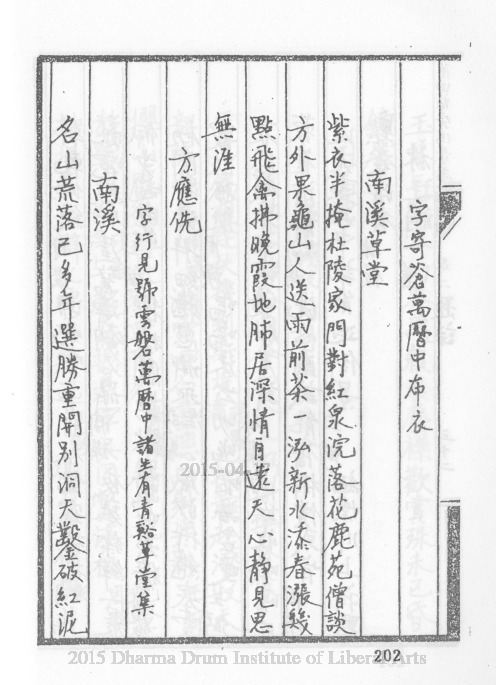 字寄谷萬曆中布衣
南溪草堂
紫衣半掩杜陵家門對紅泉浣落花鹿苑僧談
方外果龜山人送雨前茶一泓新水添春漲幾
點飛禽拂晚霞地肺居深情自遠天心靜見思
無涯
方應侁
字行見號雲磐萬曆中諸生有青谿草堂集
南溪
名山荒落已多年選勝重開別洞天鑿破紅泥
2015-04
202
2015 Dharma Drum Institute of Liberal Arts